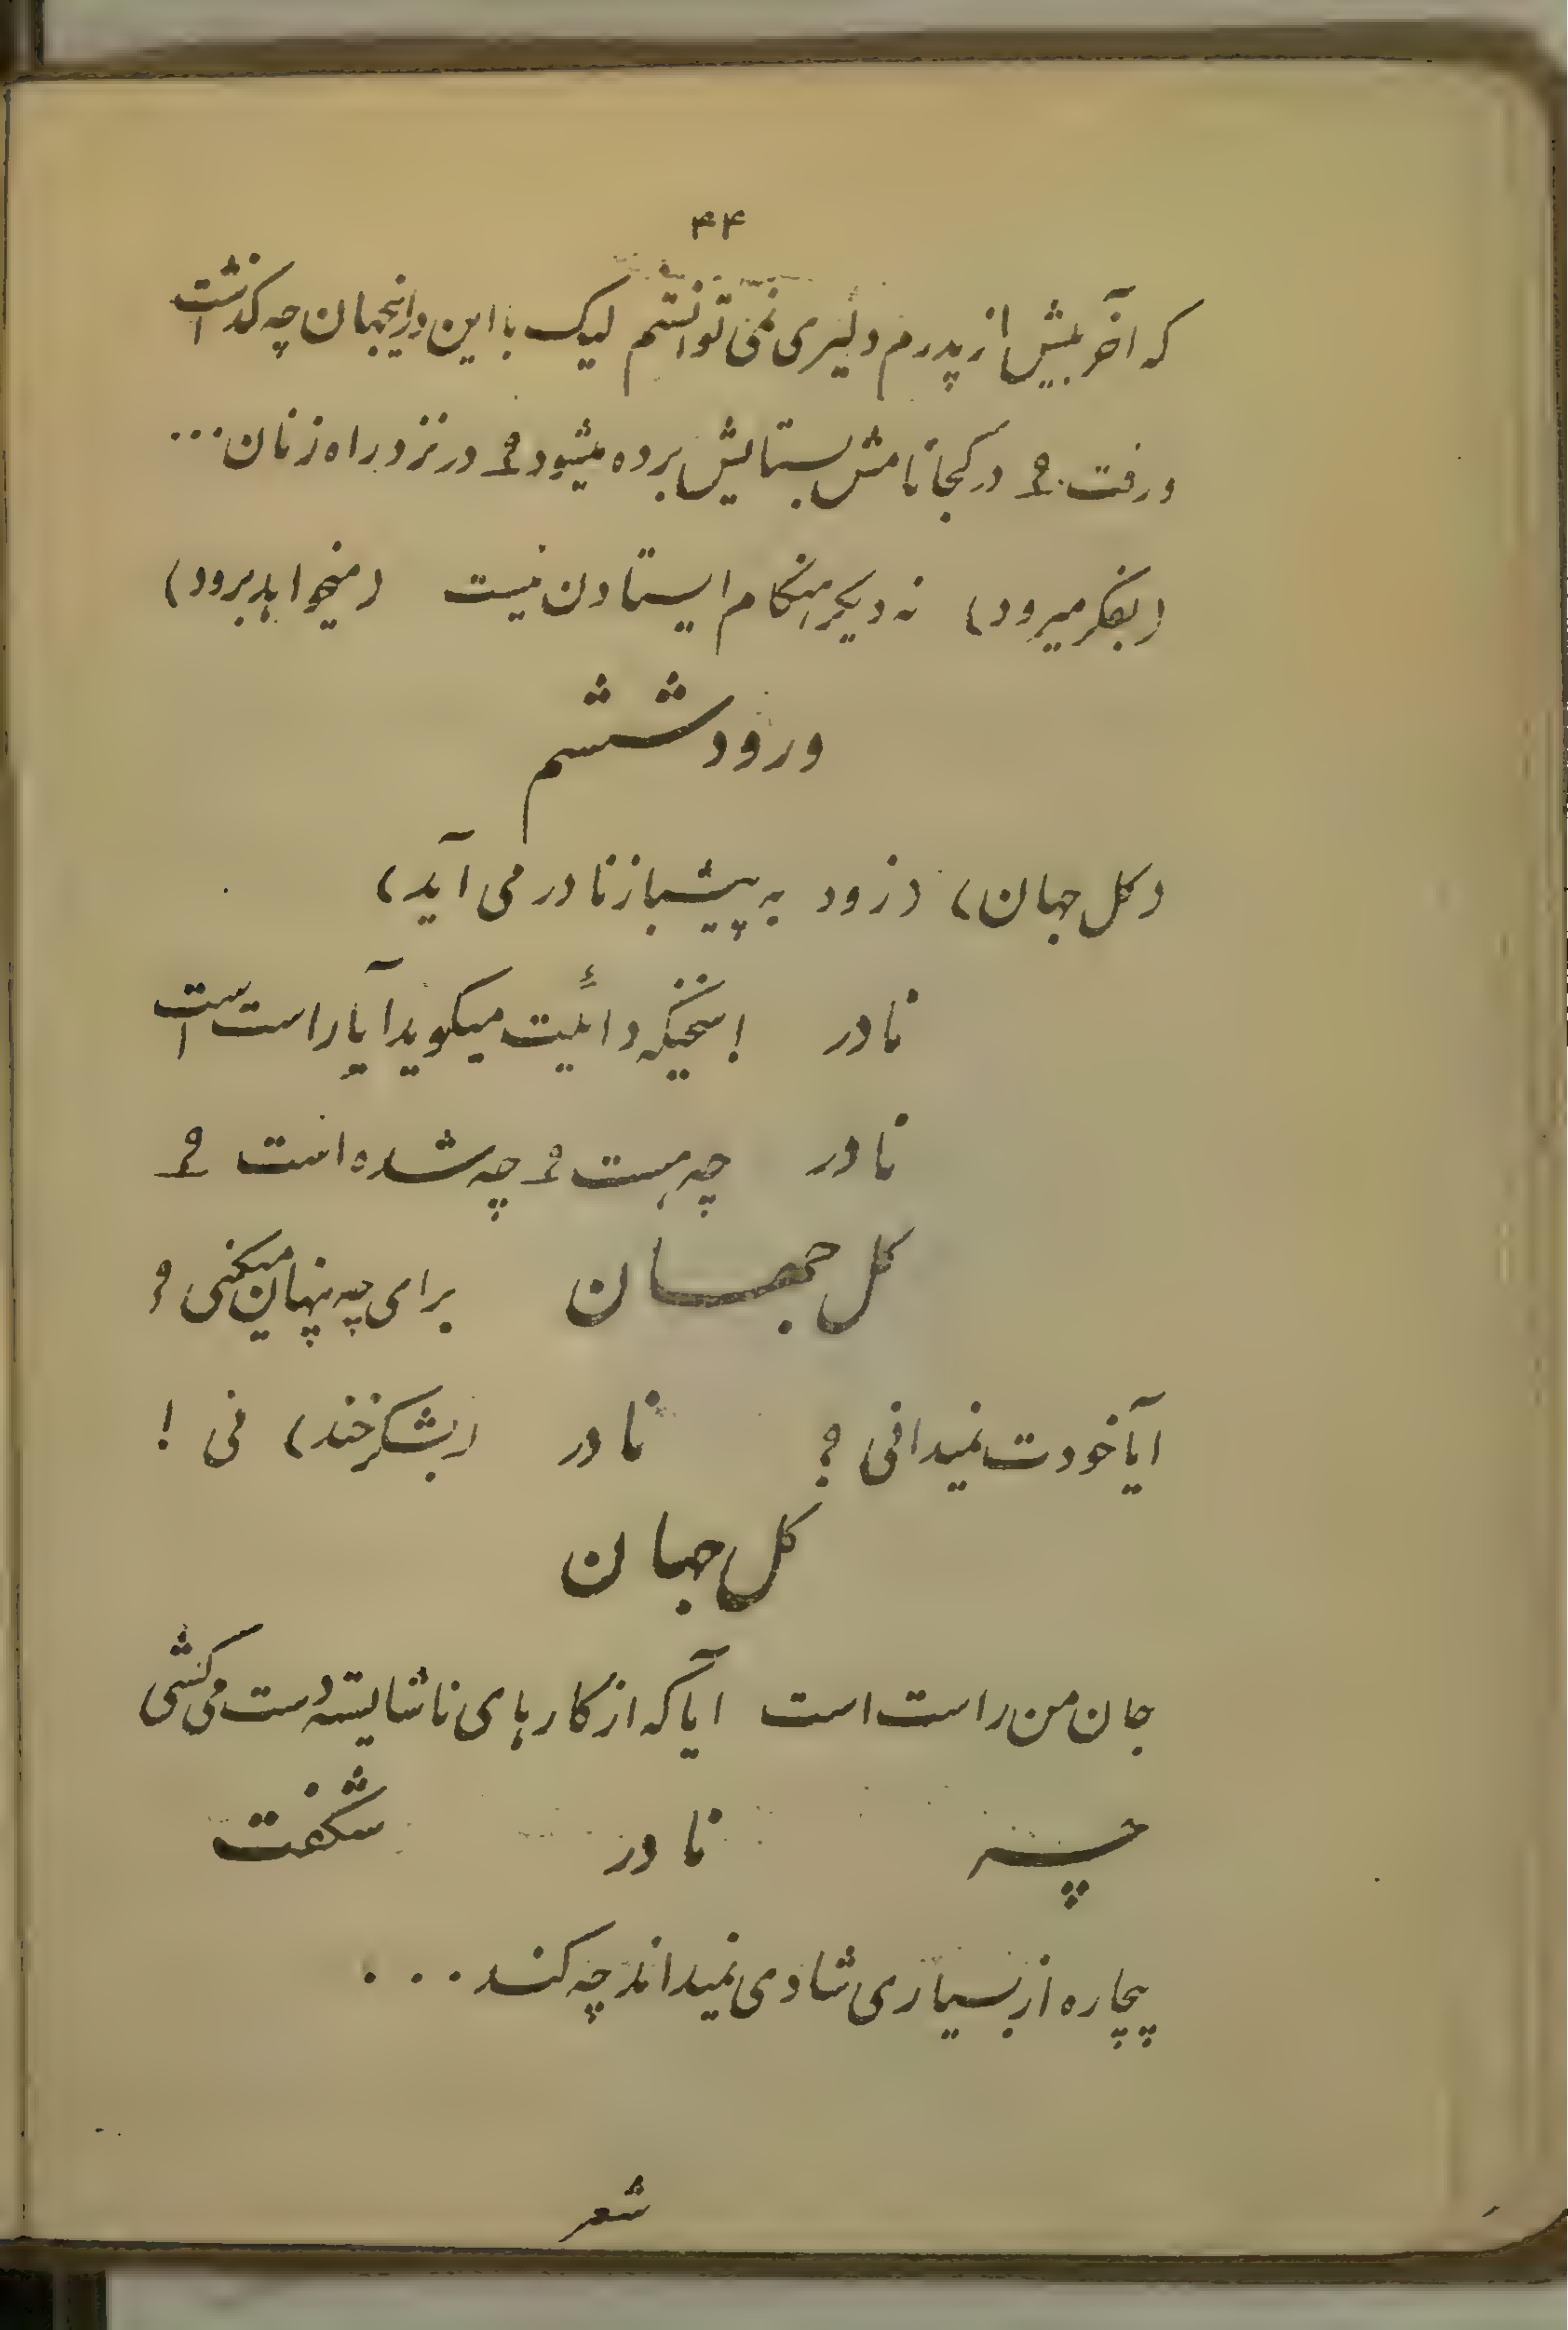 ۴۴
که آخر بیش از پدرم دلیری نمی توانستم لیک با این در اینجهان چه گذشت
ورفت؟ در کجا نامش بستایش برده میشود؟ در نزد راه زنان...
(بفکر میرود) نه دیگر هنگام ایستادن نیست (میخواهد برود)
ورود ششم
(کل جهان) (زود به پیشباز نادر می آید)
نادر اینخیکه دائیت میکوید آیا راست است
نادر چه هست؟ چه شده است؟
کل جهان برای چه پنهان میکنی؟
آیا خودت نمیدانی؟ نادر (بشکرخند) نی!
کل جهان
جان من راست است آیا که از کارهای ناشایسته دست می کشی
چه نادر شگفت
بیچاره از بسیاری شادی نمیداند چه کند...
شعر